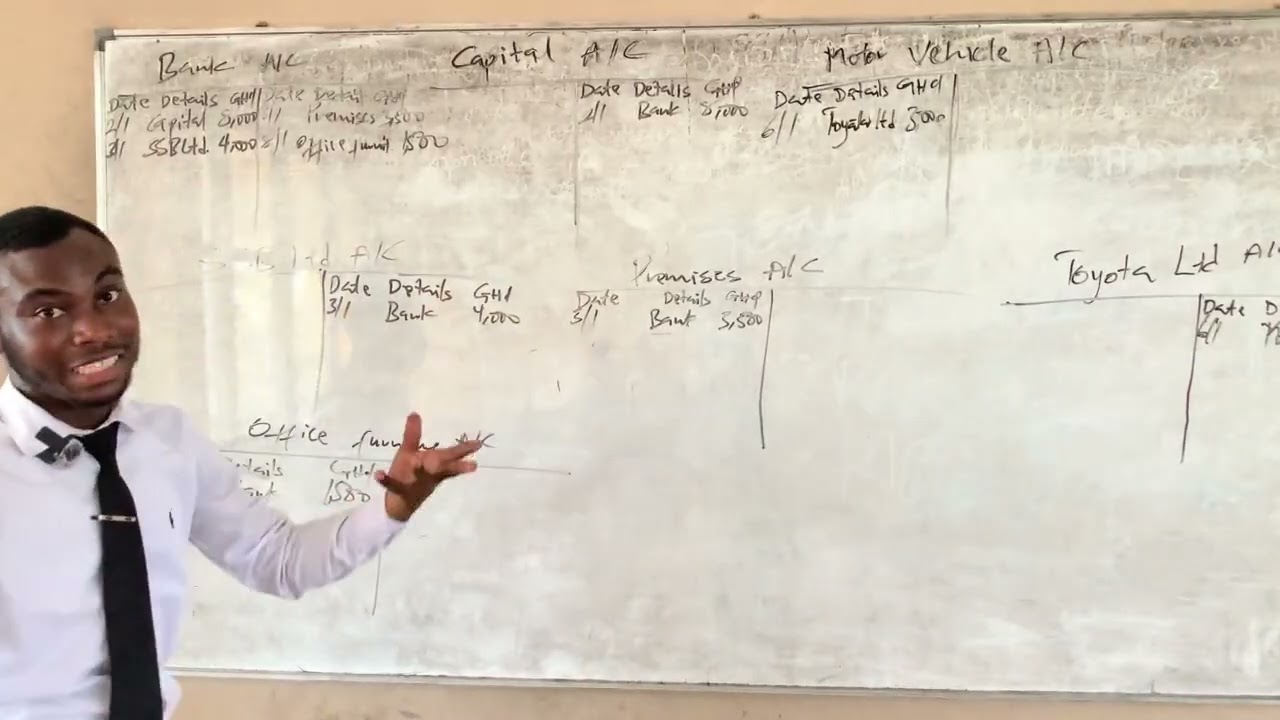 Bank A/C
Date Details GH¢ Date Detail GH¢
2/1 Capital 8,000 Premises 3,500
3/1 SSB Ltd. 4,000 Office 1500
Capital A/C
Date Details GH¢
2/1 Bank 8,000
Motor Vehicle A/C
Date Details GH¢
6/1 Toyota Ltd
Ltd A/C
Date Details GH¢
3/1 Bank 4,000
Premises A/C
Date Details GH¢
5/1 Bank 3,500
Toyota Ltd A/C
Date D
6/1
Office A/C
etails GH¢
ank 1500